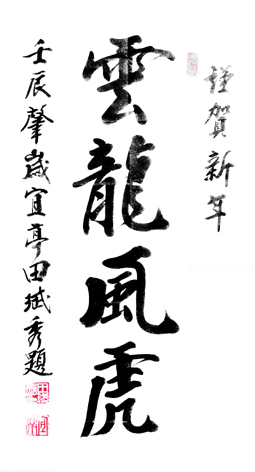 謹賀新年
雲龍風虎
壬辰肇歲宜亭田秀題